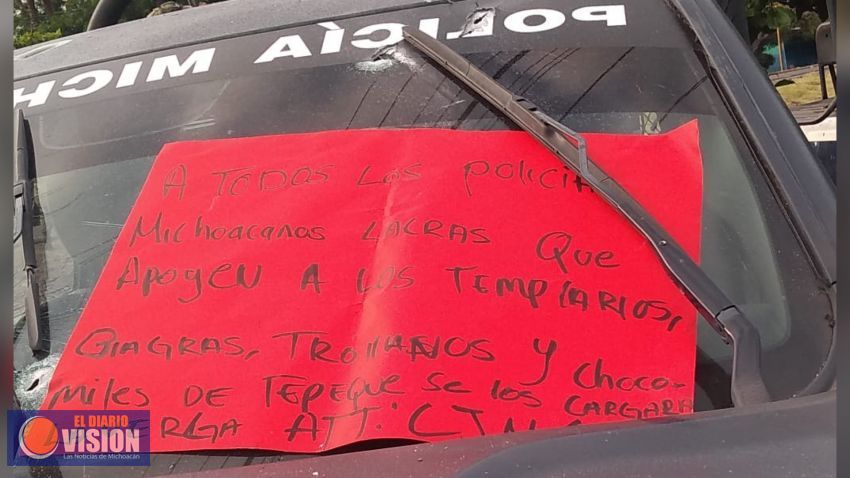 POLICÍA MICH
A TODOS LOS POLICIA
MICHOACANOS LACRAS QUE
APOYEN A LOS TEMPLARIOS,
GIAGRAS, TROIIANOS Y CHOCO-
MILES DE TEPEQUE SE LOS CARGARA
ERGA ATT: CJN
EL DIARIO
VISION
Las Noticias de Michoacán